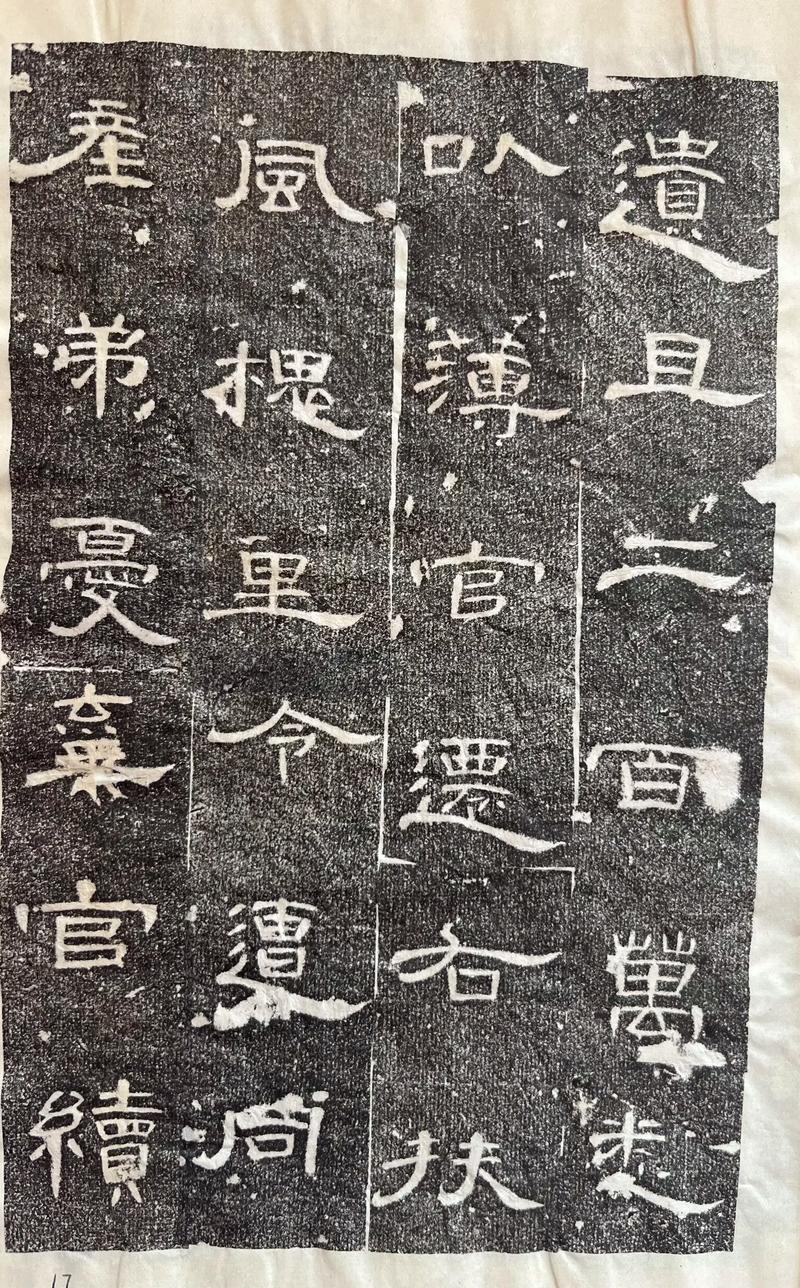 遺且二百萬悉
以薄官遷右扶
風槐里令遭同
產弟憂棄官續
17